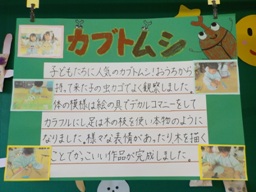 カブトムシ
子どもたちに人気のカブトムシ!おうちから
持って来た子の虫カゴでよく観察しました。
体の模様は絵の具でデカルコマニーをして
カラフルにし足は木の枝を使い本物のように
なりました。様々な表情があったり木を描く
ことでかっこいい作品が完成しました。